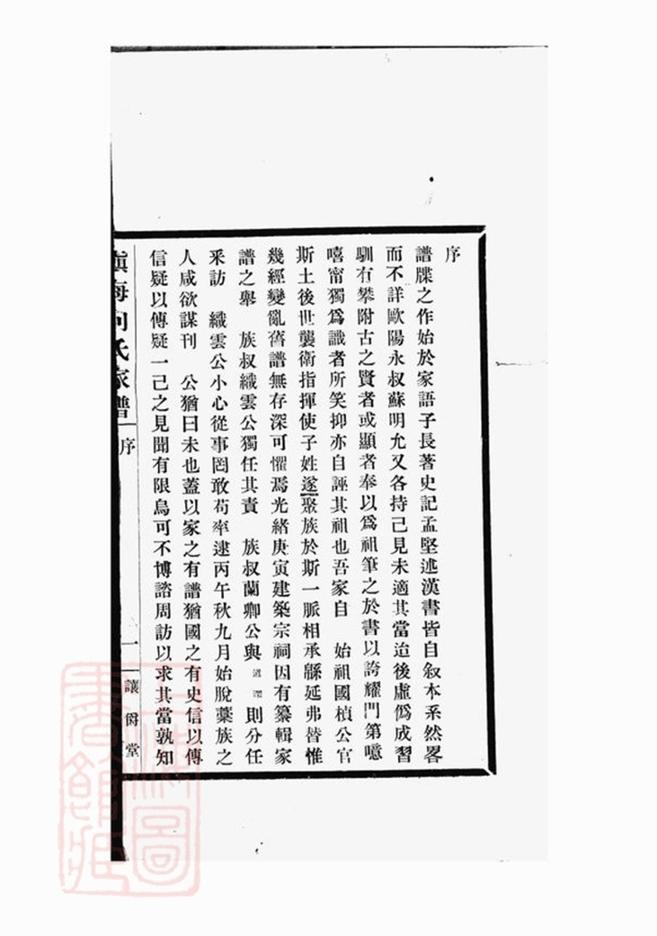 序
譜牒之作始於家語子長著史記孟堅述漢書皆自叙本系然畧
而不詳歐陽永叔蘇明允又各持己見未適其當迨後虛僞成習
馴有攀附古之賢者或顯者奉以爲祖筆之於書以誇耀門第噫
嘻甯獨爲識者所笑抑亦自誣其祖也吾家自 始祖國楨公官
斯土後世襲衛指揮使子姓遂聚族於斯一脈相承緜延弗替惟
幾經變亂舊譜無存深可懼焉光緒庚寅建築宗祠因有纂輯家
譜之舉 族叔織雲公獨任其責 族叔蘭卿公與 則分任
釆訪 織雲公小心從事罔敢苟率逮丙午秋九月始脫藁族之
人咸欲謀刊 公猶曰未也蓋以家之有譜猶國之有史信以傳
信疑以傳疑一己之見聞有限烏可不博諮周訪以求其當孰知
鎮海向氏家譜 序 一 讓爵堂